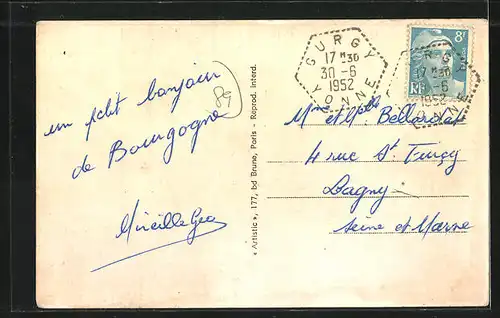 un petit bonjour
de Bourgogne
Mireille
89
« Artistic », 177, bd Brune, Paris - Reprod. interd.
GURGY
17H30
30 -6
1952
YONNE
8F
RF
GURGY
17H30
-6
1952
YONNE
Mme et
4 rue St
Lagny
Seine et Marne